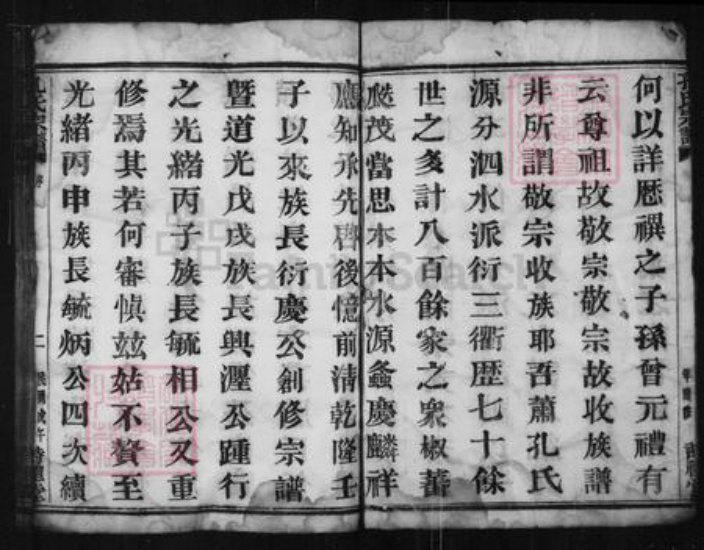 何以詳歷禩之子孫曾元禮有
云尊祖故敬宗敬宗故收族譜
非所謂敬宗收族耶吾蕭孔氏
源分泗水派衍三衢歷七十餘
世之多計八百餘家之眾椒蕃
瓞茂當思木本水源螽慶麟祥
應知承先啓後憶前清乾隆壬
子以來族長衍慶公創修宗譜
暨道光戊戌族長興溼公踵行
之光緒丙子族長毓相公又重
修焉其若何審慎茲姑不贅至
光緒丙申族長毓炳公四次續
孔氏宗譜
序
二
民國戊午
詩禮堂
FamilySearch